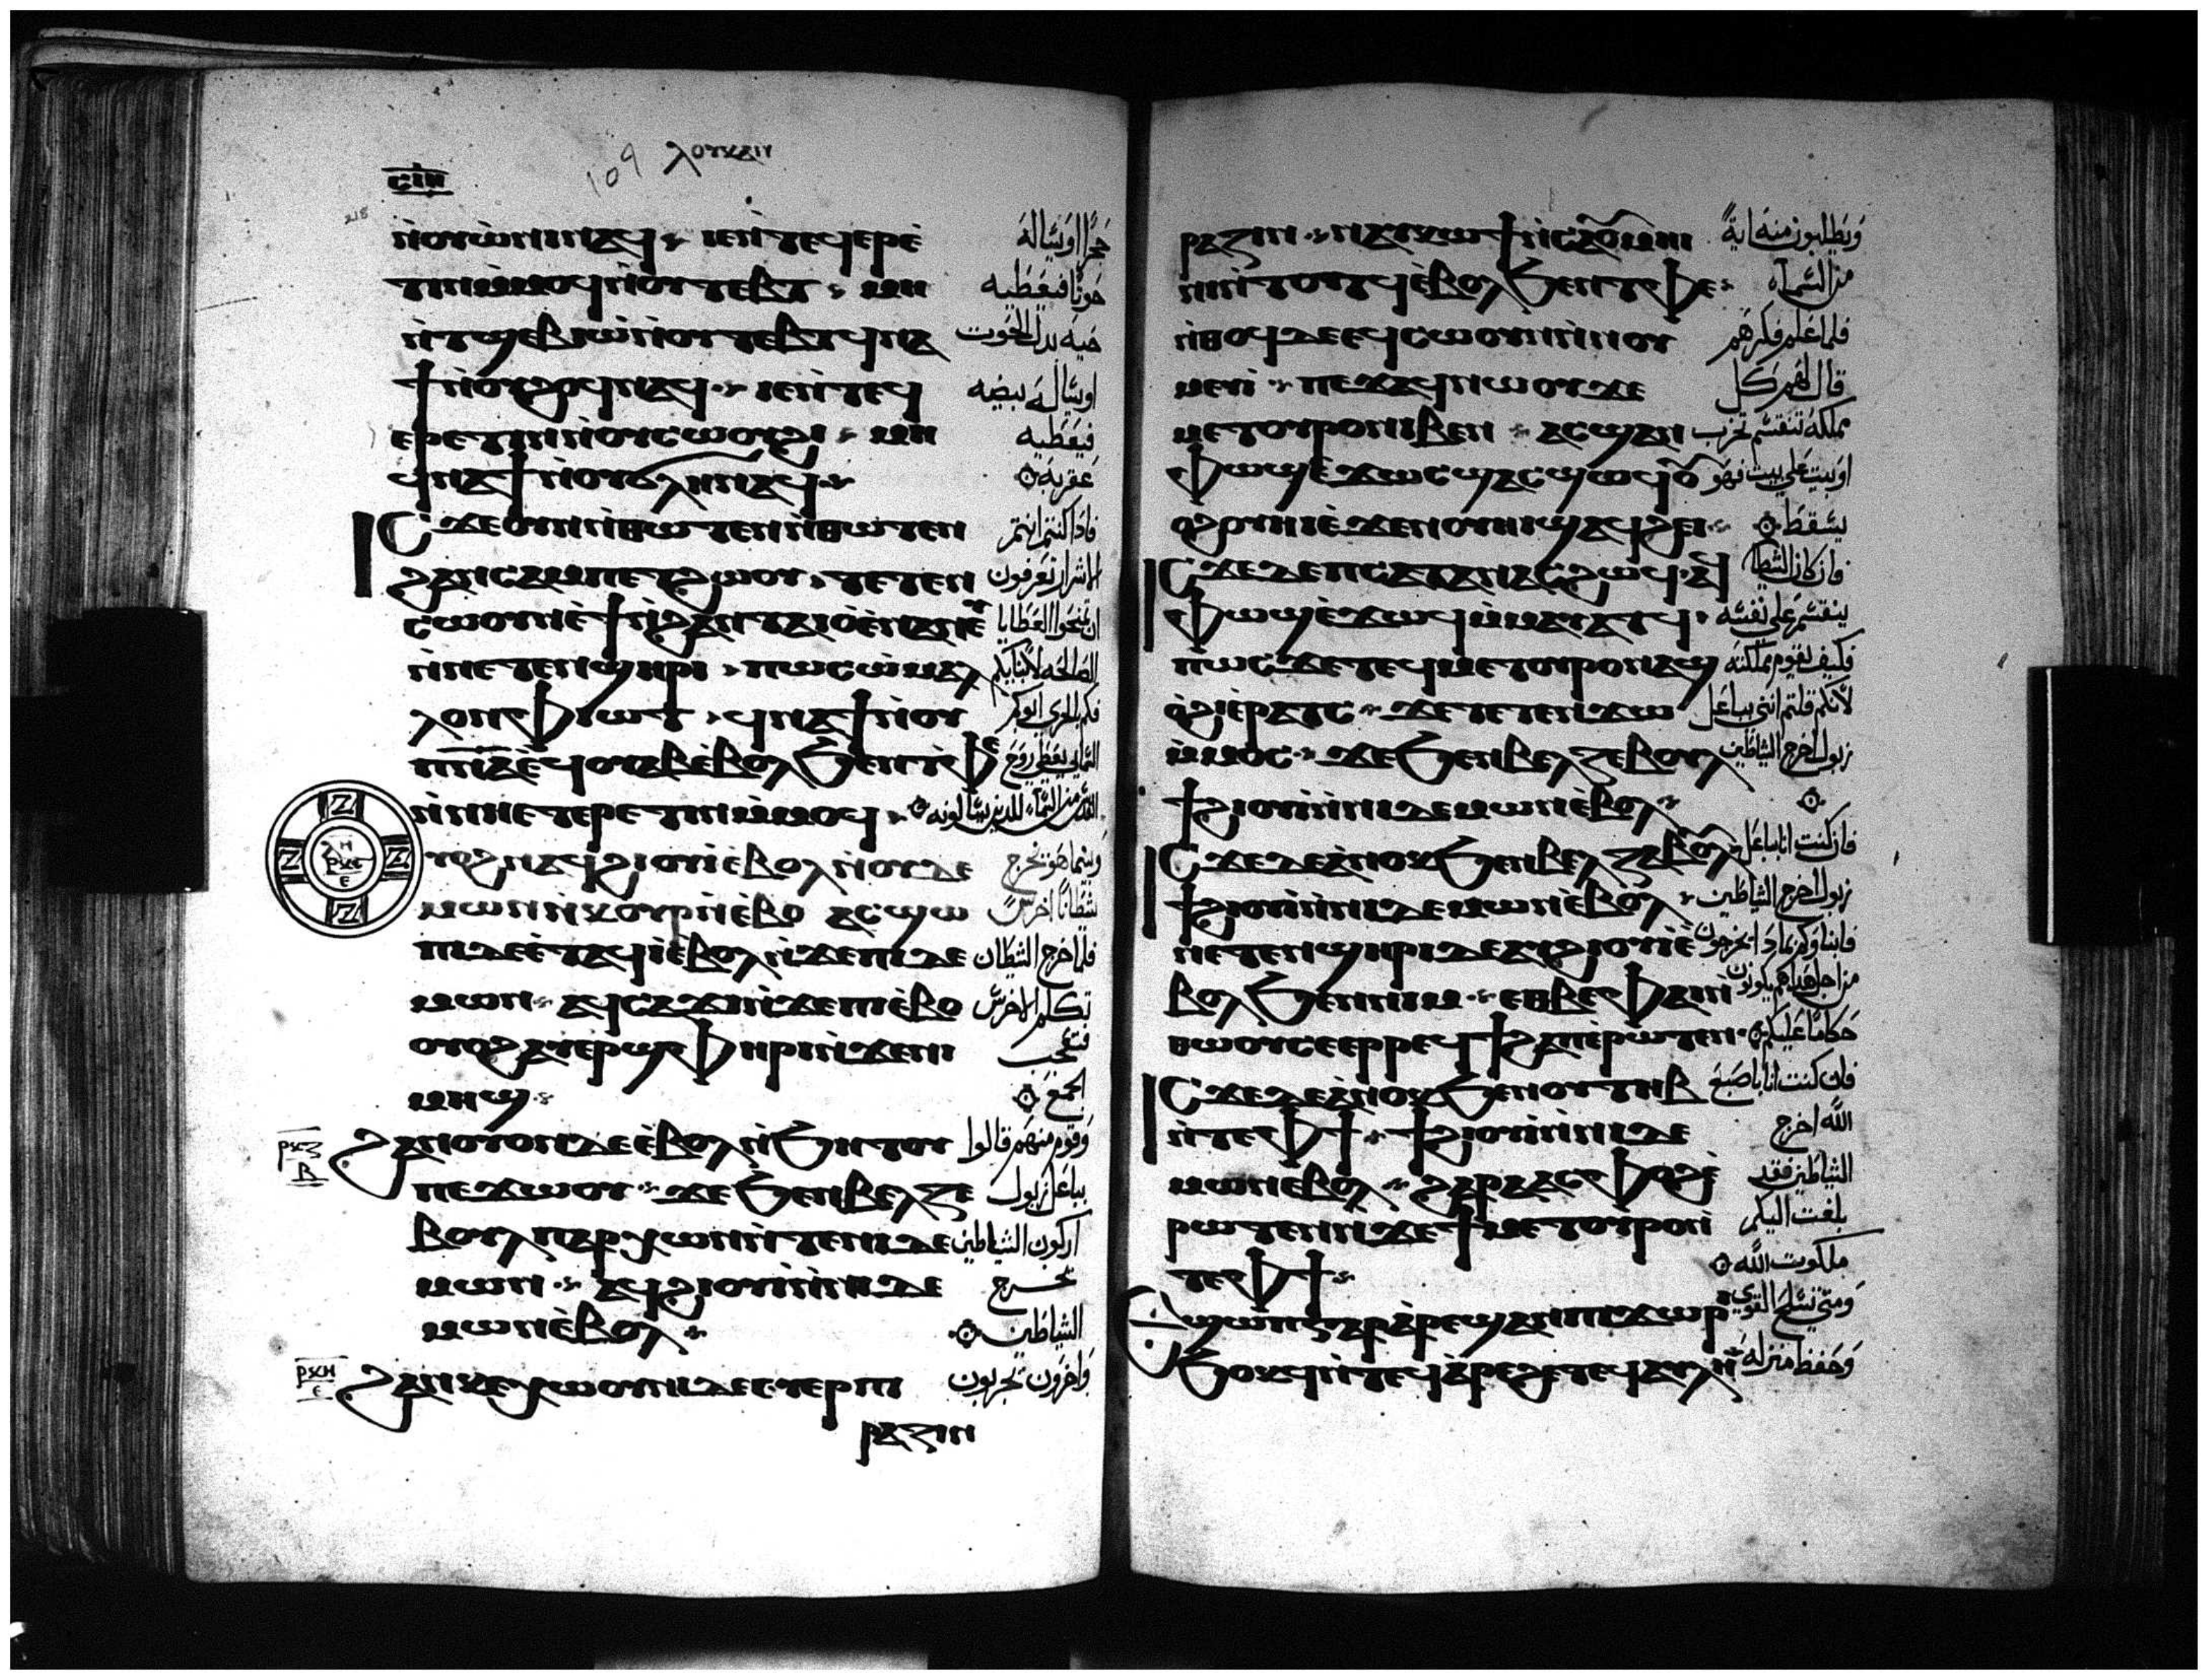 ⲥⲓⲏ
109 ⲗⲟⲩⲕⲁⲛ
218
ⲛ̀ⲟⲩⲱ̀ⲛⲓ ⲛⲁϥ ⲓⲉ ⲛ̀ⲧⲉϥⲉⲣⲉ̀
ⲧⲓⲛ ⲙ̀ⲙⲟϥ ⲛ̀ⲟⲩⲧⲉⲃⲧ ⲙⲏ
ⲛ̀ⲧϣⲉⲃⲓⲱ̀ ⲛ̀ⲟⲩⲧⲉⲃⲧ ϥⲛⲁ
ϯ ⲛ̀ⲟⲩϩⲟϥ ⲛⲁϥ ⲓⲉ ⲛ̀ⲧⲉϥ
ⲉⲣⲉⲧⲓⲛ ⲛ̀ⲟⲩⲥⲱⲟⲩϩⲓ ⲙⲏ
ϥⲛⲁϯ ⲛ̀ⲟⲩϭⲗⲏ ⲛⲁϥ
ⲓⲥϫⲉ ⲟⲩⲛ ⲛ̀ⲑⲱⲧⲉⲛ ⲛ̀ⲑⲱⲧⲉⲛ
ϩⲁⲛⲥⲁⲙⲡⲉⲧϩⲱⲟⲩ ⲧⲉⲧⲉⲛ
ⲥⲱⲟⲩⲛ ⲉ̀ϯ ⲛ̀ϩⲁⲛⲧⲁⲓⲟ̀ ⲉ̀ⲛⲁⲛⲉⲩ
ⲛ̀ⲛⲉⲧⲉⲛϣⲏⲣⲓ ⲡⲱⲥ ⲱ̀ ⲙⲁⲗ
ⲗⲟⲛ ⲫⲓⲱⲧ ϥⲛⲁϯ ⲛ̀ⲟⲩ
ⲡ̅ⲛ̅ⲁ̅ ⲉ̀ϥⲟⲩⲁⲃ ⲉ̀ⲃⲟⲗϧⲉⲛ ⲧ̀ⲫⲉ
ⲛ̀ⲛⲏⲉⲧⲉⲣⲉⲧⲓⲛ ⲙ̀ⲙⲟϥ
ⲟⲩⲟϩ ⲛⲁϥϩⲓⲟⲩⲓ̀ ⲉ̀ⲃⲟⲗ ⲛ̀ⲟⲩⲇⲉ
ⲙⲱⲛ ⲛ̀ⲕⲟⲩⲣ ⲛ̀ⲉ̀ⲃⲟ ⲁⲥϣⲱ
ⲡⲓ ⲇⲉ ⲉ̀ⲧⲁϥⲓ̀ ⲉ̀ⲃⲟⲗ ⲛ̀ϫⲉ ⲡⲓⲇⲉ
ⲙⲱⲛ ⲁϥⲥⲁϫⲓ ⲛ̀ϫⲉ ⲡⲓⲉ̀ⲃⲟ
ⲟⲩⲟϩ ⲁⲩⲉⲣϣⲫⲏⲣⲓ ⲛ̀ϫⲉ ⲛⲓ
ⲙⲏϣ
ⲣⲕⲍ ⲃ
ϩⲁⲛⲟⲩⲟⲛ ⲇⲉ ⲉ̀ⲃⲟⲗ ⲛ̀ϧⲏⲧⲟⲩ
ⲡⲉϫⲱⲟⲩ ϫⲉ ϧⲉⲛ ⲃⲉⲗⲍⲉ
ⲃⲟⲩⲗ ⲡⲁⲣⲭⲱⲛ ⲛ̀ⲧⲉ ⲛⲓⲇⲉ
ⲙⲱⲛ ⲁϥϩⲓⲟⲩⲓ̀ ⲛ̀ⲛⲓⲇⲉ
ⲙⲱⲛ ⲉ̀ⲃⲟⲗ
ⲣⲕⲏ ⲉ
ϩⲁⲛⲕⲉⲭⲱⲟⲩⲛⲓ ⲇⲉ ⲉⲩⲉⲣⲡⲓ
ⲣⲁⲍⲓⲛ
حجرا او يساله
حوتا فيعطيه
حيه بدل الحوت
او يساله بيضه
فيعطيه
عقربه
فاذا كنتم انتم
الاشرار تعرفون
ان تمنحوا العطايا
الصالحه لابنايكم
فكم بالحري ابوكم
السمايي يعطي روح
القدس من السماء للذين يسالونه
وبينما هو يخرج
شيطانا اخرس
فلما خرج الشيطان
تكلم الاخرس
فتعجب
الجمع
وقوم منهم قالوا
بباعل زبول
اركون الشياطين
يخرج
الشياطين
واخرون يجربون
ⲣⲁⲍⲓⲛ ⲛⲁⲩⲕⲱϯ ⲛ̀ⲥⲁ ⲟⲩⲙⲏⲓⲛⲓ
ⲛ̀ⲧⲟⲧϥ ⲉ̀ⲃⲟⲗϧⲉⲛ ⲧⲫⲉ
ⲛ̀ⲑⲟϥ ⲇⲉ ⲉϥⲥⲱⲟⲩⲛ ⲛ̀ⲛⲟⲩ
ⲙⲉⲩⲓ̀ ⲡⲉϫⲁϥ ⲛⲱⲟⲩ ϫⲉ
ⲙⲉⲧⲟⲩⲣⲟ ⲛⲓⲃⲉⲛ ⲁⲥϣⲁⲛ
ⲫⲱϣ ⲉ̀ϫⲱⲥ ϣⲁⲥϣⲱϥ
ⲟⲩⲟϩ ⲟⲩⲏⲓ ⲉ̀ϫⲉⲛ ⲟⲩⲏⲓ ϣⲁϥϩⲉⲓ
ⲓⲥϫⲉ ⲇⲉ ⲡⲥⲁⲧⲁⲛⲁⲥ ϩⲱϥ ⲁϥ
ⲫⲱϣ ⲉ̀ϫⲱϥ ⲙ̀ⲙⲁⲩⲁⲧϥ
ⲡⲱⲥ ϫⲉ ⲧⲉϥⲙⲉⲧⲟⲩⲣⲟ ⲛⲁϣ
ⲟ̀ϩⲓ ⲉ̀ⲣⲁⲧⲥ ϫⲉ ⲧⲉⲧⲉⲛϫⲱ
ⲙ̀ⲙⲟⲥ ϫⲉ ϧⲉⲛ ⲃⲉⲗⲍⲉⲃⲟⲩⲗ
ϯϩⲓⲟⲩⲓ̀ ⲛ̀ⲛⲓⲇⲉⲙⲱⲛ ⲉ̀ⲃⲟⲗ
ⲓⲥϫⲉ ⲇⲉ ⲁ̀ⲛⲟⲕ ϧⲉⲛ ⲃⲉⲗⲍⲉⲃⲟⲩⲗ
ϯϩⲓⲟⲩⲓ̀ ⲛ̀ⲛⲓⲇⲉⲙⲱⲛ ⲉ̀ⲃⲟⲗ
ⲛⲉⲧⲉⲛϣⲏⲣⲓ ⲇⲉ ⲁⲩϩⲓⲟⲩⲓ̀ ⲉ̀
ⲃⲟⲗ ϧⲉⲛ ⲛⲓⲙ ⲉⲑⲃⲉ ⲫⲁⲓ ⲛ̀
ⲑⲱⲟⲩ ⲥⲉⲉⲣⲣⲉϥϯϩⲁⲡ ⲉ̀ⲣⲱⲧⲉⲛ
ⲓⲥϫⲉ ⲇⲉ ⲁ̀ⲛⲟⲕ ϧⲉⲛ ⲟⲩⲧⲏⲃ
ⲛ̀ⲧⲉ ⲫϯ ϯϩⲓⲟⲩⲓ̀ ⲛ̀ⲛⲓⲇⲉ
ⲙⲱⲛ ⲉⲃⲟⲗ ϩⲁⲣⲁ ⲁⲥⲫⲟϩ ⲉ̀
ⲣⲱⲧⲉⲛ ⲛ̀ϫⲉ ϯⲙⲉⲧⲟⲩⲣⲟ ⲛ̀
ⲧⲉ ⲫϯ
ⲉϣⲱⲡ ⲅⲁⲣ ⲁ̀ⲣⲉϣⲁⲛ ⲡⲓϫⲱⲣⲓ
ϧⲟⲕϥ ⲛ̀ⲧⲉϥⲁ̀ⲣⲉϩ ⲉⲧⲉϥⲁⲩⲗⲏ
ويطلبون منه اية
من السماء
فلما علم فكرهم
قال لهم كل
مملكة تنقسم تخرب
او بيت علي بيت فهو
يسقط
فان كان الشيطان
ينقسم علي نفسه
فكيف تقوم مملكته
لانكم قلتم انني بباعل
زبول اخرج الشياطين
فان كنت انا بباعل
زبول اخرج الشياطين
فابناوكم بماذا يخرجون
من اجل هذا هم يكونون
حكاما عليكم
فان كنت انا باصبع
الله اخرج
الشياطين فقد
بلغت اليكم
ملكوت الله
ومتي تسلح القوي
وحفظ منزله